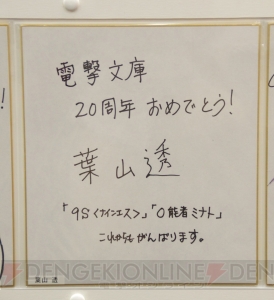 電撃文庫
20周年 おめでとう!
葉山透
「9S<ナインエス>」「0能者ミナト」
これからもがんばります。
葉山 透
DENGEKIONLINE DENGEK